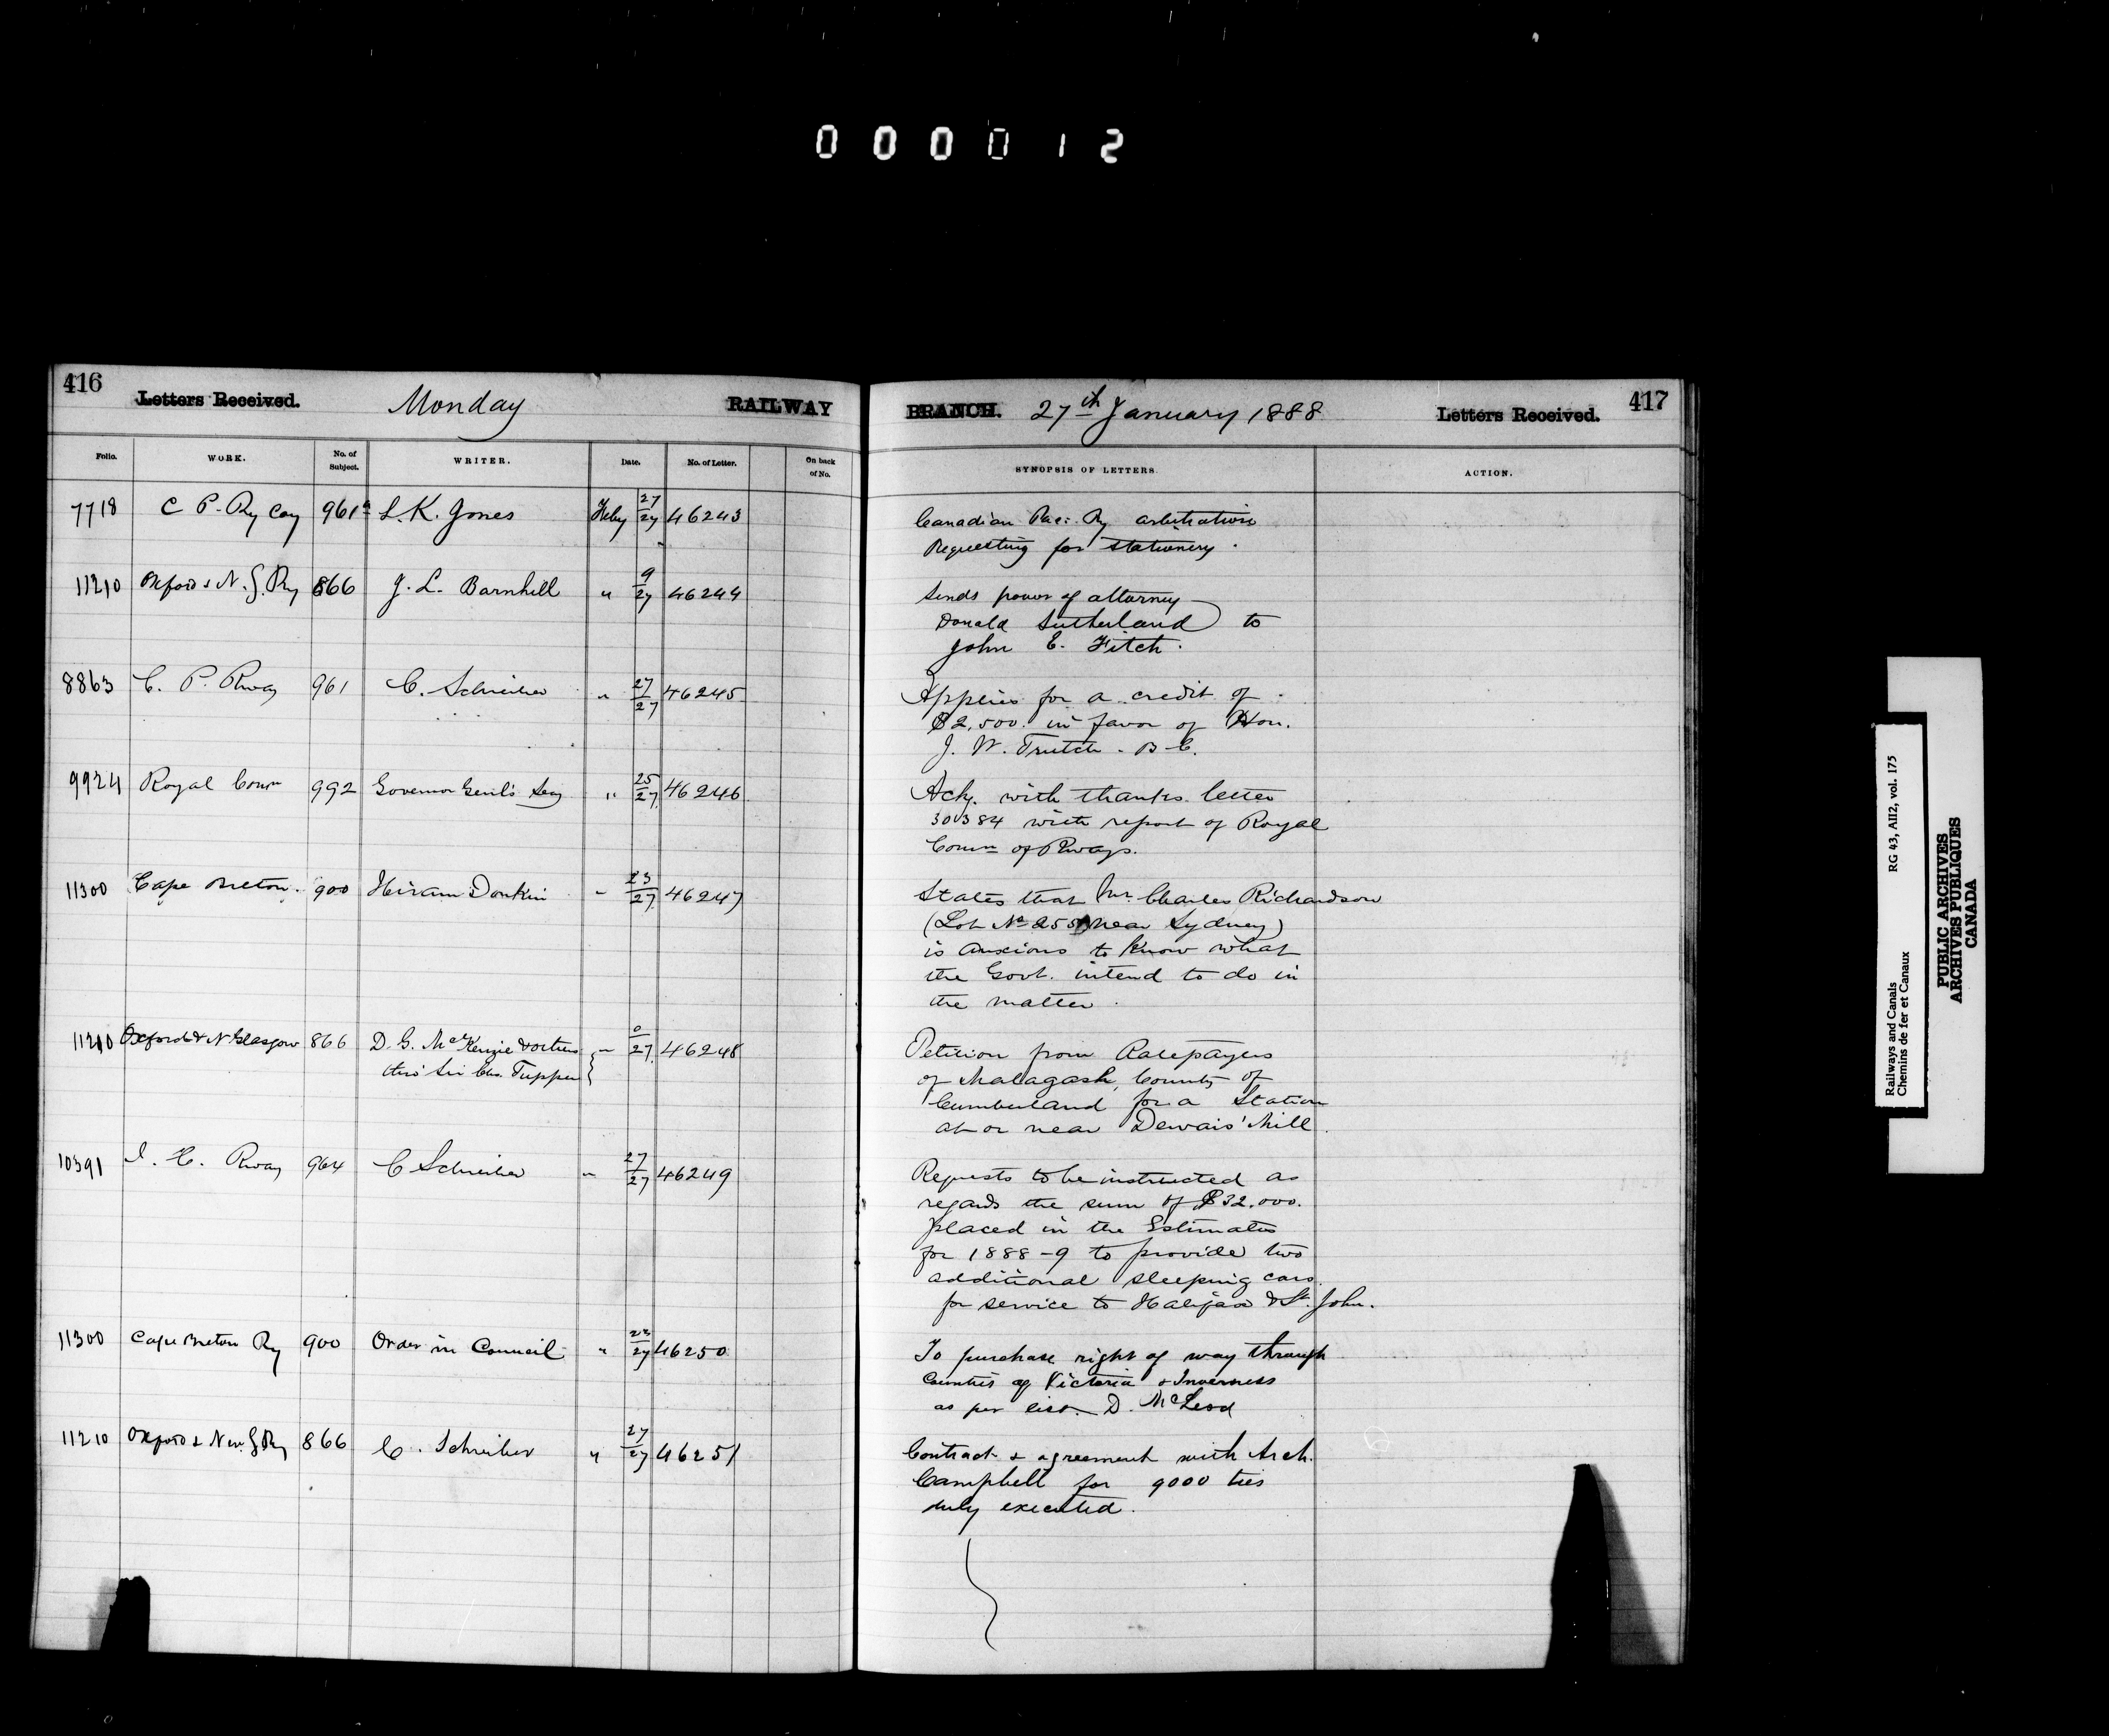 000012
416
Letters Received.
Monday
RAILWAY
Folio.
WORK.
No. of Subject.
WRITER.
Date.
No. of Letter.
On back of No.
7718 C P. Ry Coy 961a L. K. Jones Feby 27/27 46243
11210 Oxford & N. G. Ry 866 J. L. Barnhill " 9/27 46244
8863 C. P. Rway 961 C. Schreiber " 27/27 46245
9924 Royal Comn 992 Governor Genl's Secy " 25/27 46246
11300 Cape Breton. 900 Hiram Donkin " 23/27 46247
11210 Oxford & N Glasgow 866 D. G. McKenzie & others " 0/27 46248
thro' Sir Chs. Tupper
10391 I. C. Rway 964 C Schreiber " 27/27 46249
11300 Cape Breton Ry 900 Order in Council " 23/27 46250
11210 Oxford & New G Ry 866 C. Schreiber " 27/27 46251
BRANCH.
27th January 1888
Letters Received.
417
SYNOPSIS OF LETTERS.
ACTION.
Canadian Pac: Ry arbitration
Requesting for stationery.
Sends power of attorney
Donald Sutherland to
John E. Fitch.
Applies for a credit of
$2,500. in favor of Hon.
J. W. Trutch - B.C.
Ack. with thanks letter
30384 with report of Royal
Comn of Rways.
States that Mr. Charles Richardson
(Lot No 255 near Sydney)
is anxious to know what
the Govt. intend to do in
the matter.
Petition from Ratepayers
of Malagash, County of
Cumberland for a Station
at or near Dewars' Mill.
Requests to be instructed as
regards the sum of $32.000.
placed in the Estimates
for 1888-9 to provide two
additional sleeping cars
for service to Halifax & St. John.
To purchase right of way through
Counties of Victoria & Inverness
as per list. D. McLeod
Contract & agreement with Arch.
Campbell for 9000 ties
duly executed.
Railways and Canals
Chemins de fer et Canaux
RG 43, AII2, vol. 175
PUBLIC ARCHIVES
ARCHIVES PUBLIQUES
CANADA